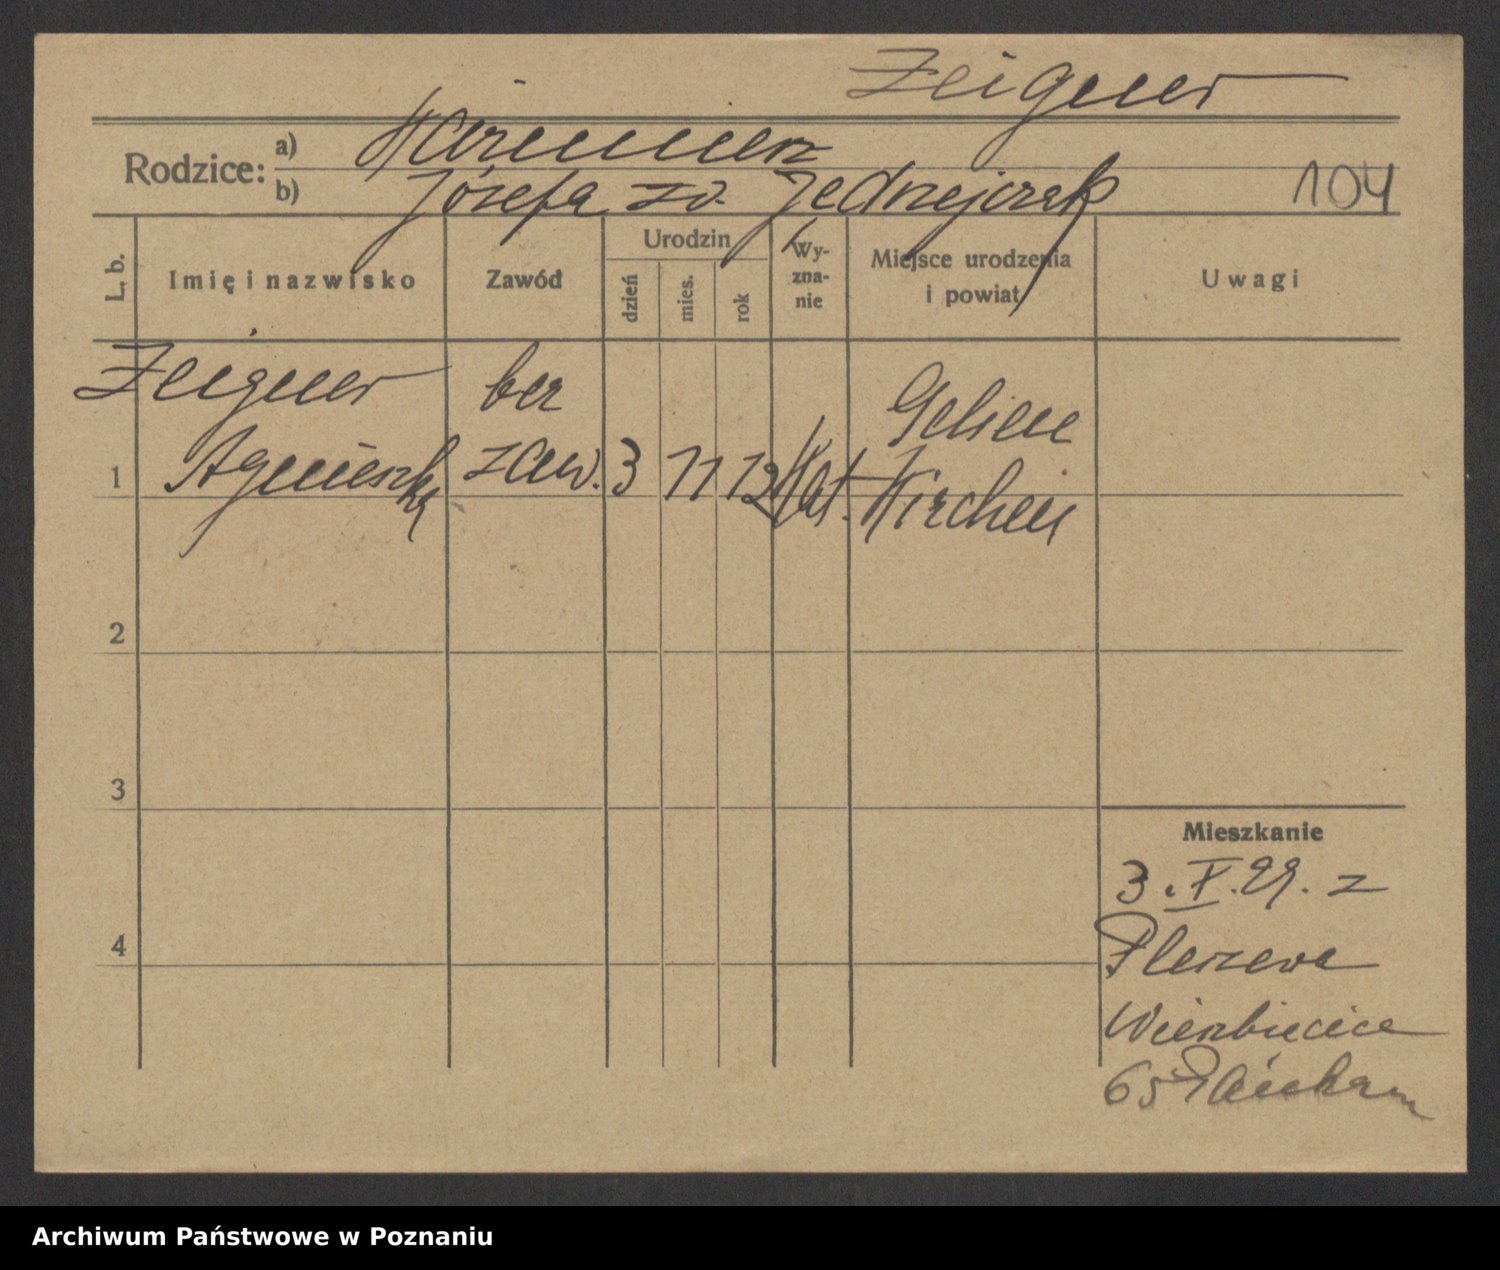 Zeigner
Rodzice:
a) Kazimierz
b) Józefa zd. Jedrzejczak
104
L. b.
Imię i nazwisko
Zawód
Urodzin
dzień
mies.
rok
Wy-
zna-
nie
Miejsce urodzenia
i powiat
Uwagi
Zeigner
Agnieszka
bez
zaw.
3
11
12
Kat.
Gelsen
Kirchen
1
2
3
4
Mieszkanie
3. X. 29. z
Pleszewa
Wierzbięcice
65
Archiwum Państwowe w Poznaniu